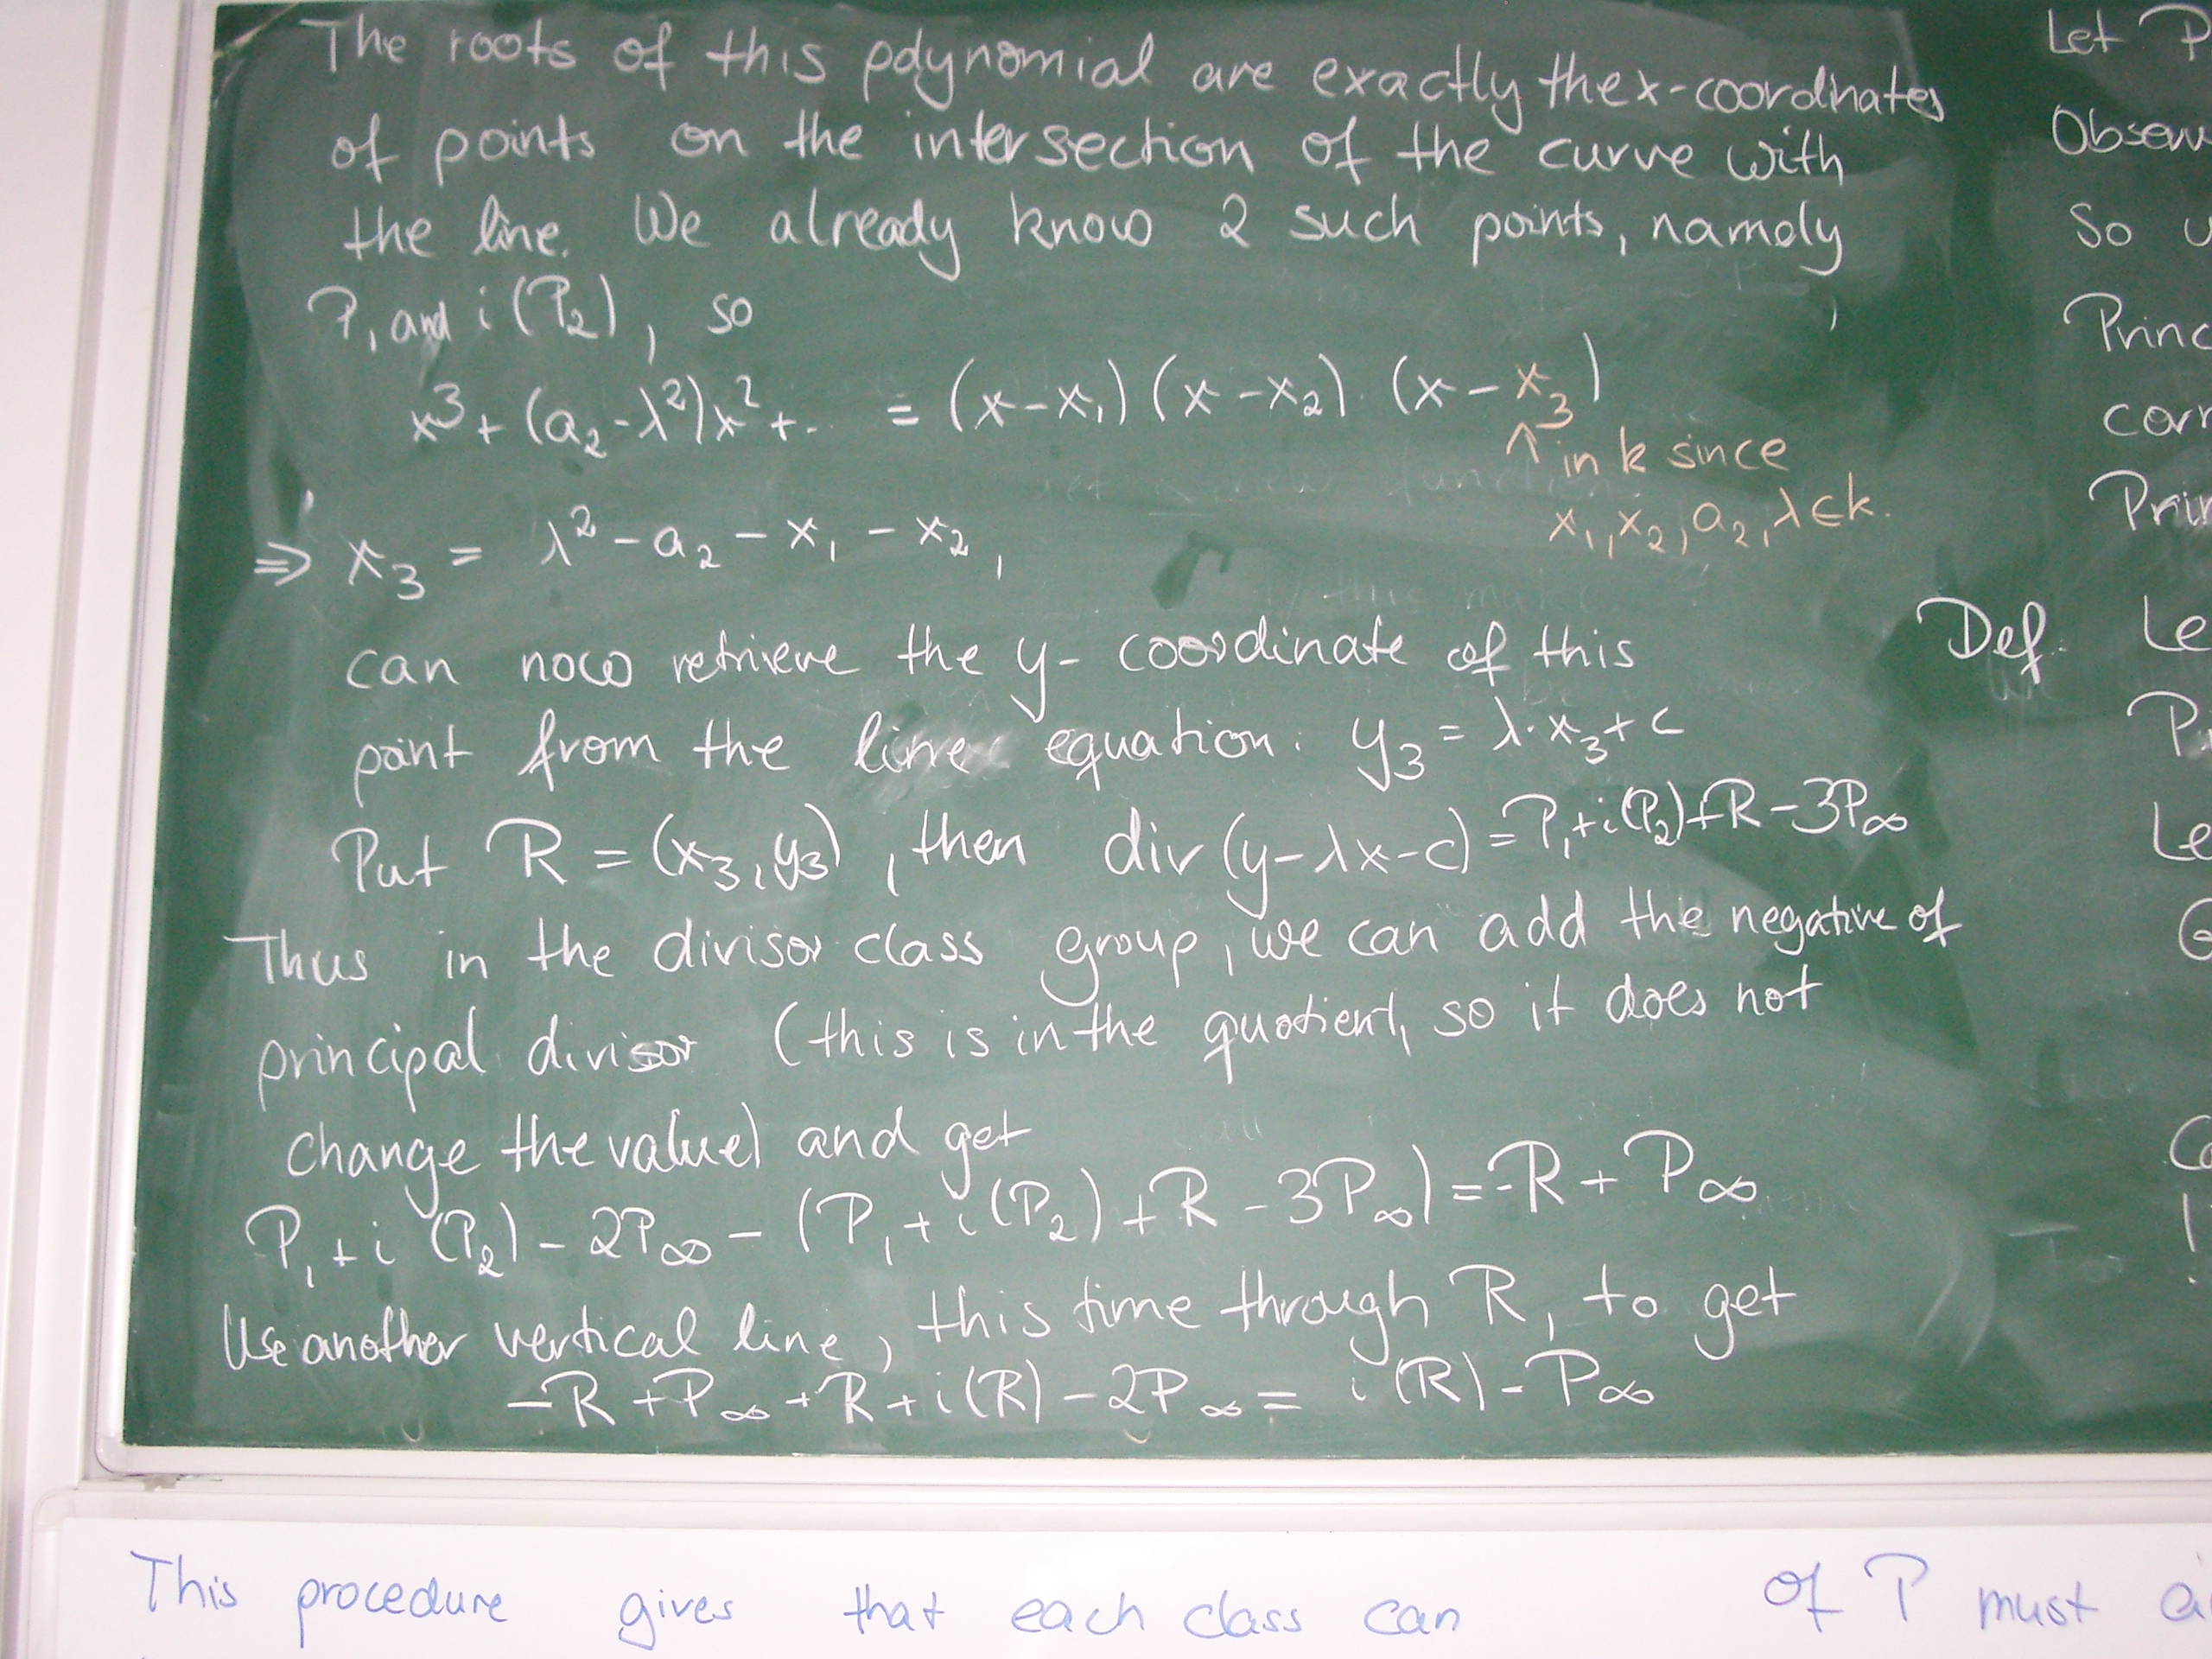 The roots of this polynomial are exactly the x-coordinates
of points on the intersection of the curve with
the line. We already know 2 such points, namely
P₁ and i(P₂), so
x³ + (a₂ - λ²)x² + .. = (x - x₁) (x - x₂) · (x - x₃)
↑ in k since
x₁, x₂, a₂, λ ∈ k.
⇒ x₃ = λ² - a₂ - x₁ - x₂,
can now retrieve the y-coordinate of this
point from the line equation: y₃ = λ·x₃ + c
Put R = (x₃, y₃), then div (y - λx - c) = P₁ + i(P₂) + R - 3P∞
Thus in the divisor class group, we can add the negative of
principal divisor (this is in the quotient, so it does not
change the value) and get
P₁ + i(P₂) - 2P∞ - (P₁ + i(P₂) + R - 3P∞) = -R + P∞
Use another vertical line, this time through R, to get
-R + P∞ + R + i(R) - 2P∞ = i(R) - P∞
Let P
So
Def. Le
P
Le
This procedure gives that each class can
of P must